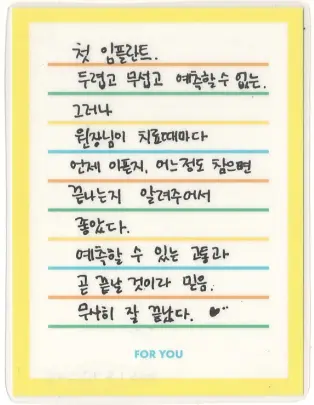 첫 임플란트.
두렵고 무섭고 예측할 수 없는.
그러나
원장님이 치료때마다
언제 아픈지, 어느정도 참으면
끝나는지 알려주어서
좋았다.
예측할 수 있는 고통과
곧 끝날 것이라 믿음.
무사히 잘 끝났다. ♥
FOR YOU